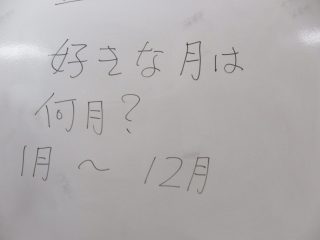 好きな月は
何月?
1月 ~ 12月